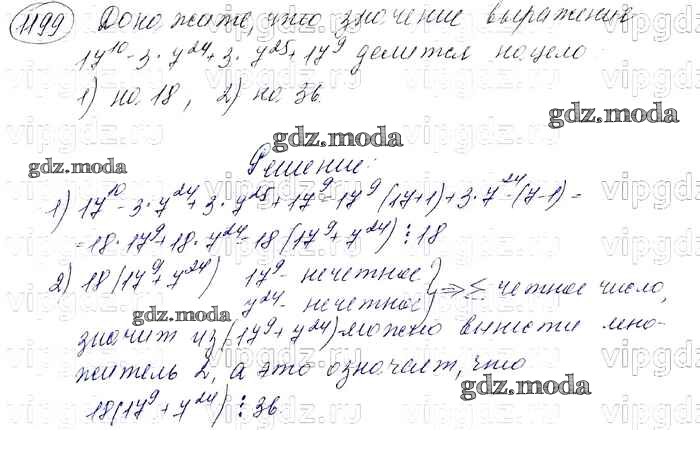 1199 Докажите, что значение выражения
17^10 - 3·7^24 + 3·7^25 + 17^9 делится нацело:
1) на 18, 2) на 36.
Решение:
1) 17^10 - 3·7^24 + 3·7^25 + 17^9 = 17^9 (17+1) + 3·7^24 (7-1) =
= 18·17^9 + 18·7^24 = 18 (17^9 + 7^24) ⋮ 18
2) 18 (17^9 + 7^24) 17^9 - нечетное
7^24 - нечетное } ⇒ Σ четное число,
значит из (17^9 + 7^24) можно вынести мно-
житель 2, а это означает, что
18(17^9 + 7^24) ⋮ 36.
gdz.moda
gdz.moda
gdz.moda
gdz.moda
gdz.moda
gdz.moda